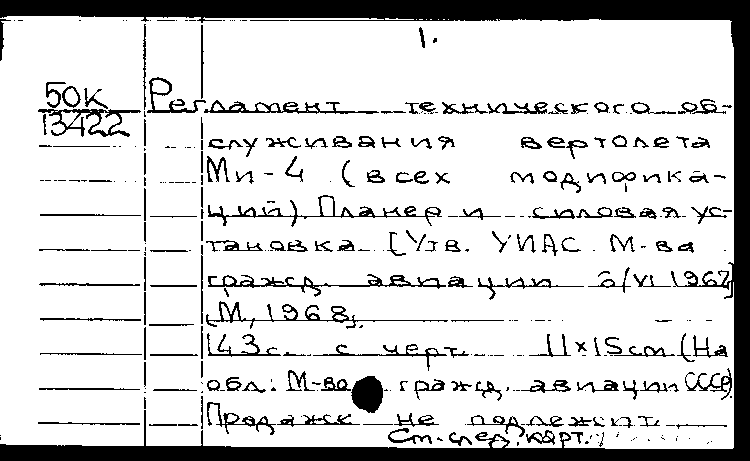 1.
50К
13422
Регламент технического об-
служивания вертолета
Ми-4 (всех модифика-
ций). Планер и силовая ус-
тановка. [Утв. УИАС М-ва
гражд. авиации 6/VI 1967]
[М., 1968].
143с. с черт. 11×15см. (На
обл.: М-во гражд. авиации СССР)
Продаже не подлежит.
См. след. карт.